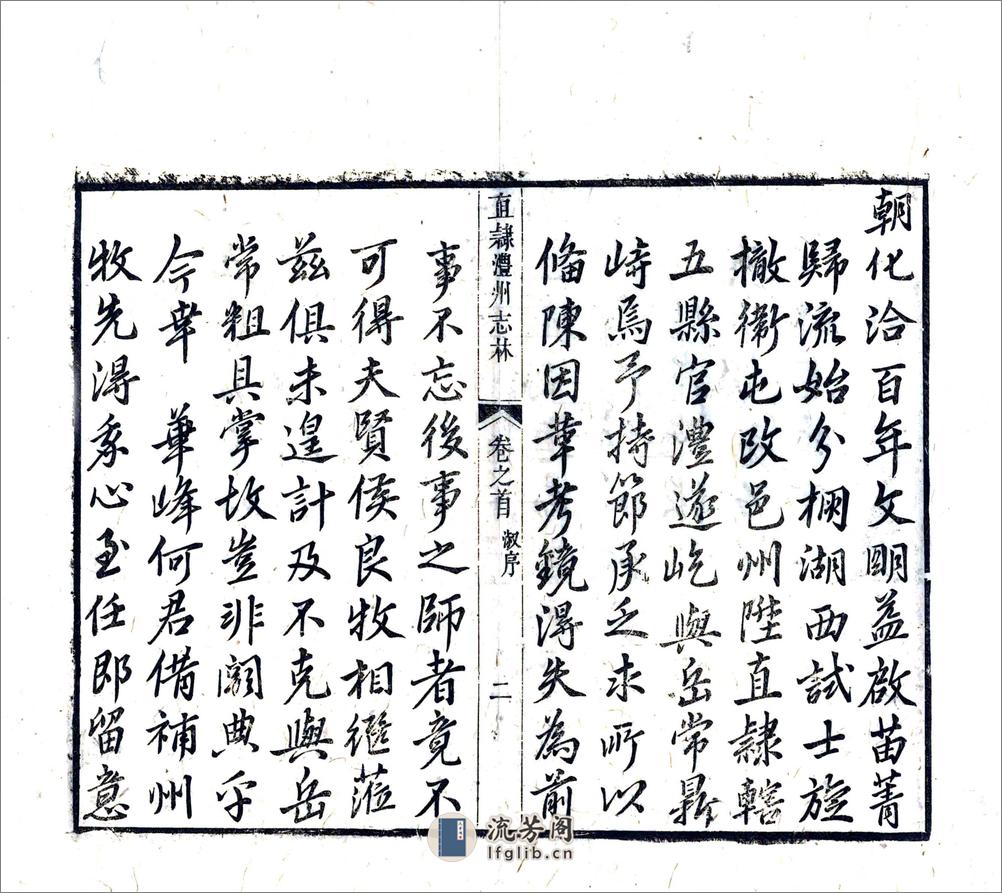 朝化洽百年文明益啟苗菁
歸流始分棚湖西試士旋
撤衛屯改邑州陞直隸轄
五縣官澧遂屹與岳常鼎
峙焉予持節承乏求所以
俻陳因革考鏡淂失為前
直隸澧州志林
卷之首
敘序
二
事不忘後事之師者竟不
可得夫賢侯良牧相繼蒞
茲俱未遑計及不克與岳
常粗具掌故豈非闕典乎
今幸 華峰何君備補州
牧先淂系心至任郎留意
流芳阁
lfglib.cn